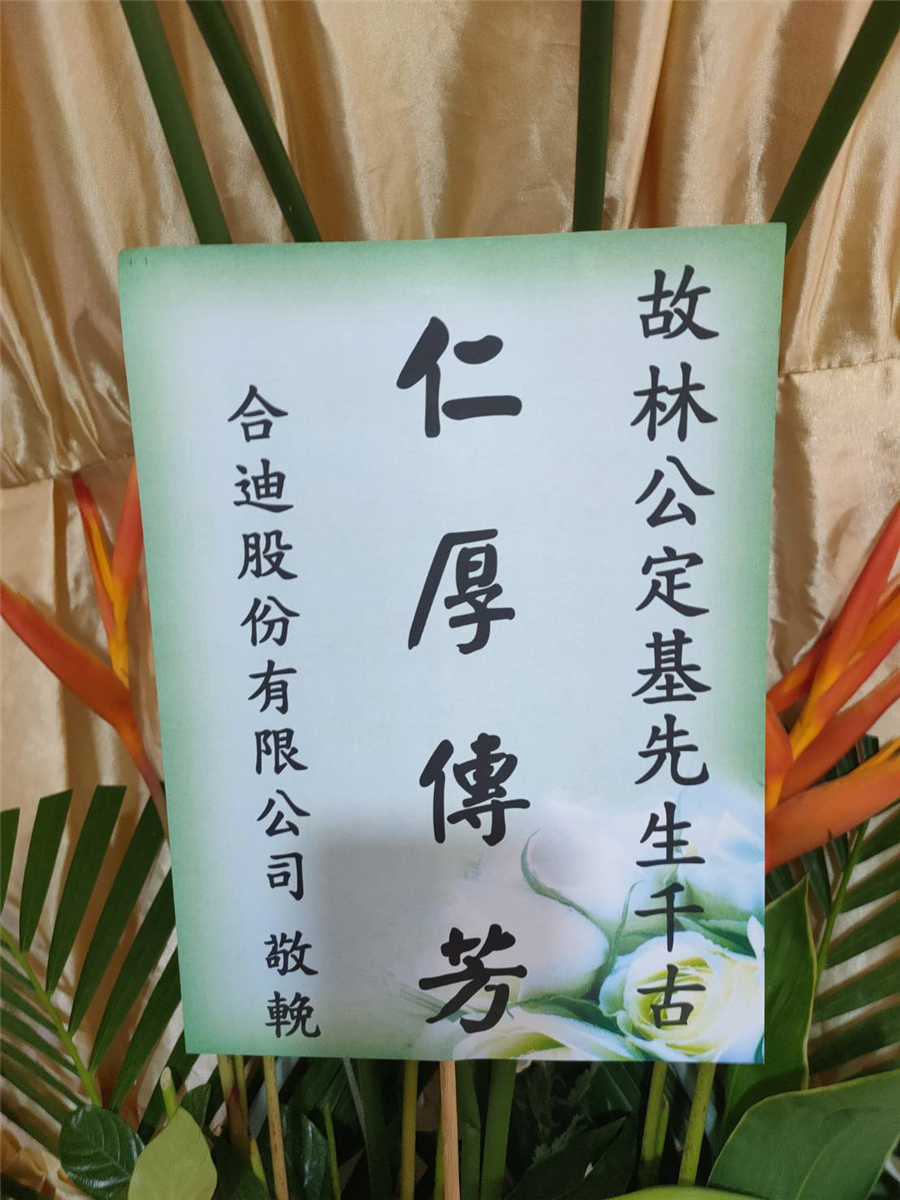 故林公定基先生千古
仁厚傳芳
合迪股份有限公司 敬輓